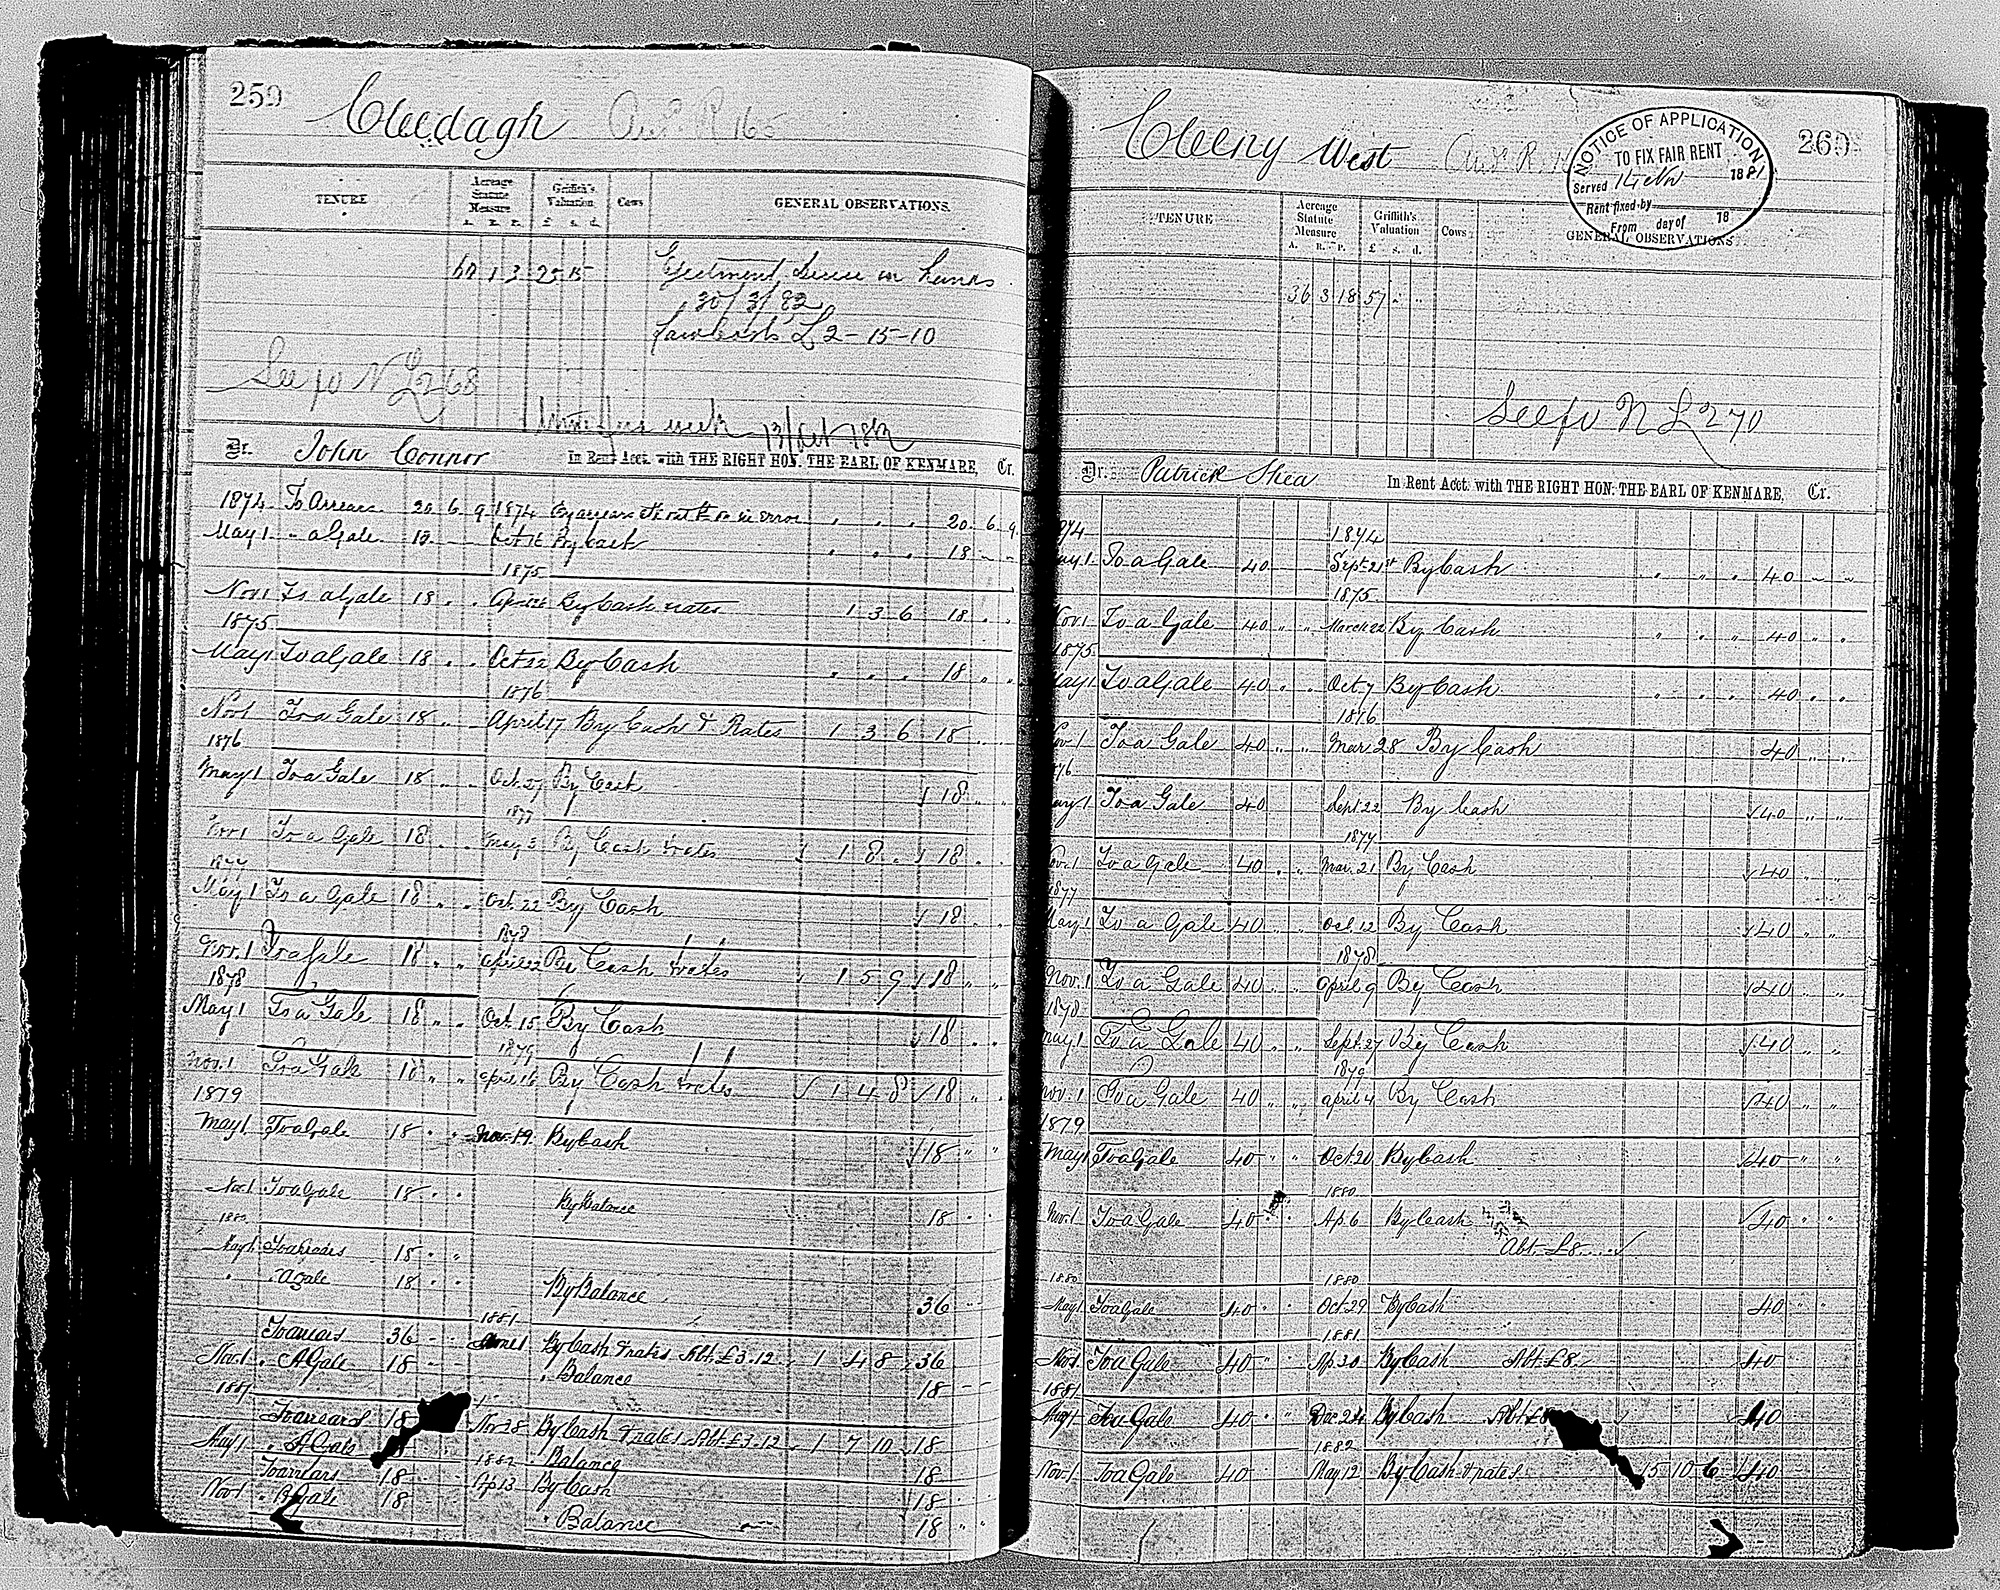 259
Cleedagh
TENURE Acreage Statute Measure A. R. P. Griffith's Valuation £ s. d. Cows GENERAL OBSERVATIONS.
1 3 25 15 Ejectment
30/3/82
£2-15-10
See fo N L 268
Dr. John Connor In Rent Acct. with THE RIGHT HON. THE EARL OF KENMARE, Cr.
1874 To Arrears 20 6 9 1874 By arrears in error 20 6 9
May 1 " a Gale 18 Oct 16 By Cash " " " 18 " "
1875
Nov 1 To a Gale 18 " " April By Cash rates 1 3 6 18 " "
1875
May 1 To a Gale 18 " " Oct 22 By Cash " " " 18 " "
1876
Nov 1 To a Gale 18 " " April 17 By Cash & Rates 1 3 6 18 " "
1876
May 1 To a Gale 18 " " Oct 27 By Cash 18 " "
1877
Nov 1 To a Gale 18 " " May 3 By Cash & rates 1 8 " 18 " "
1877
May 1 To a Gale 18 " " Oct 22 By Cash 18 " "
1878
Nov. 1 To a Gale 18 " " April 22 By Cash & rates 1 5 9 18 " "
1878
May 1 To a Gale 18 " " Oct 15 By Cash 18 " "
1879
Nov. 1 To a Gale 18 " " April 16 By Cash & rates 1 4 8 18 " "
1879
May 1 To a Gale 18 " " Nov. 19 By Cash 18 " "
Nov 1 To a Gale 18 " " By Balance 18 " "
1880
May 1 To arrears 18 " "
" " a gale 18 " " By Balance 36 " "
1881
To arrears 36 " " By Cash & rates Abt. £3.12 1 4 8 36
Nov. 1 " A Gale 18 " " " Balance 18 " "
1881
To arrears 18 Nov 28 By Cash & rates Abt. £3.12 1 7 10 18
May 1 " A Gale " Balance 18
1882
To arrears 18 Ap 13 By Cash 18
Nov 1 " A Gale 18 " Balance 18 " "
Cleeny West
260
NOTICE OF APPLICATION
TO FIX FAIR RENT
Served 14 Nov 1881
Rent fixed by 18
From day of
TENURE Acreage Statute Measure A. R. P. Griffith's Valuation £ s. d. Cows GENERAL OBSERVATIONS
36 3 18 57 " "
See fo N L 270
Dr. Patrick Shea In Rent Acct. with THE RIGHT HON. THE EARL OF KENMARE, Cr.
1874 1874
May 1 To a Gale 40 Sept 21st By Cash " " " 40 " "
1875
Nov. 1 To a Gale 40 " " March 22 By Cash " " " 40 " "
1875
May 1 To a Gale 40 " " Oct 7 By Cash " " " 40 " "
1876
Nov. 1 To a Gale 40 " " Mar 28 By Cash 40 " "
1876
May 1 To a Gale 40 Sept 22 By Cash 40 " "
1877
Nov. 1 To a Gale 40 " " Mar. 21 By Cash 40 " "
1877
May 1 To a Gale 40 " " Oct. 12 By Cash 40 " "
1878
Nov. 1 To a Gale 40 " " April 9 By Cash 40 " "
1878
May 1 To a Gale 40 " " Sept. 27 By Cash 40 " "
1879
Nov. 1 To a Gale 40 " " April 4 By Cash 40 " "
1879
May 1 To a Gale 40 " " Oct 20 By Cash 40 " "
1880
Nov. 1 To a Gale 40 " " Ap 6 By Cash 40 " "
Abt. £8
1880 1880
May 1 To a Gale 40 " " Oct 29 By Cash 40 " "
1881
Nov 1 To a Gale 40 " " Ap 20 By Cash Abt £8 40
1881
May 1 To a Gale 40 " " Dec 24 By Cash Abt £8 40
1882
Nov. 1 To a Gale 40 May 12 By Cash & rates 15 10 6 40